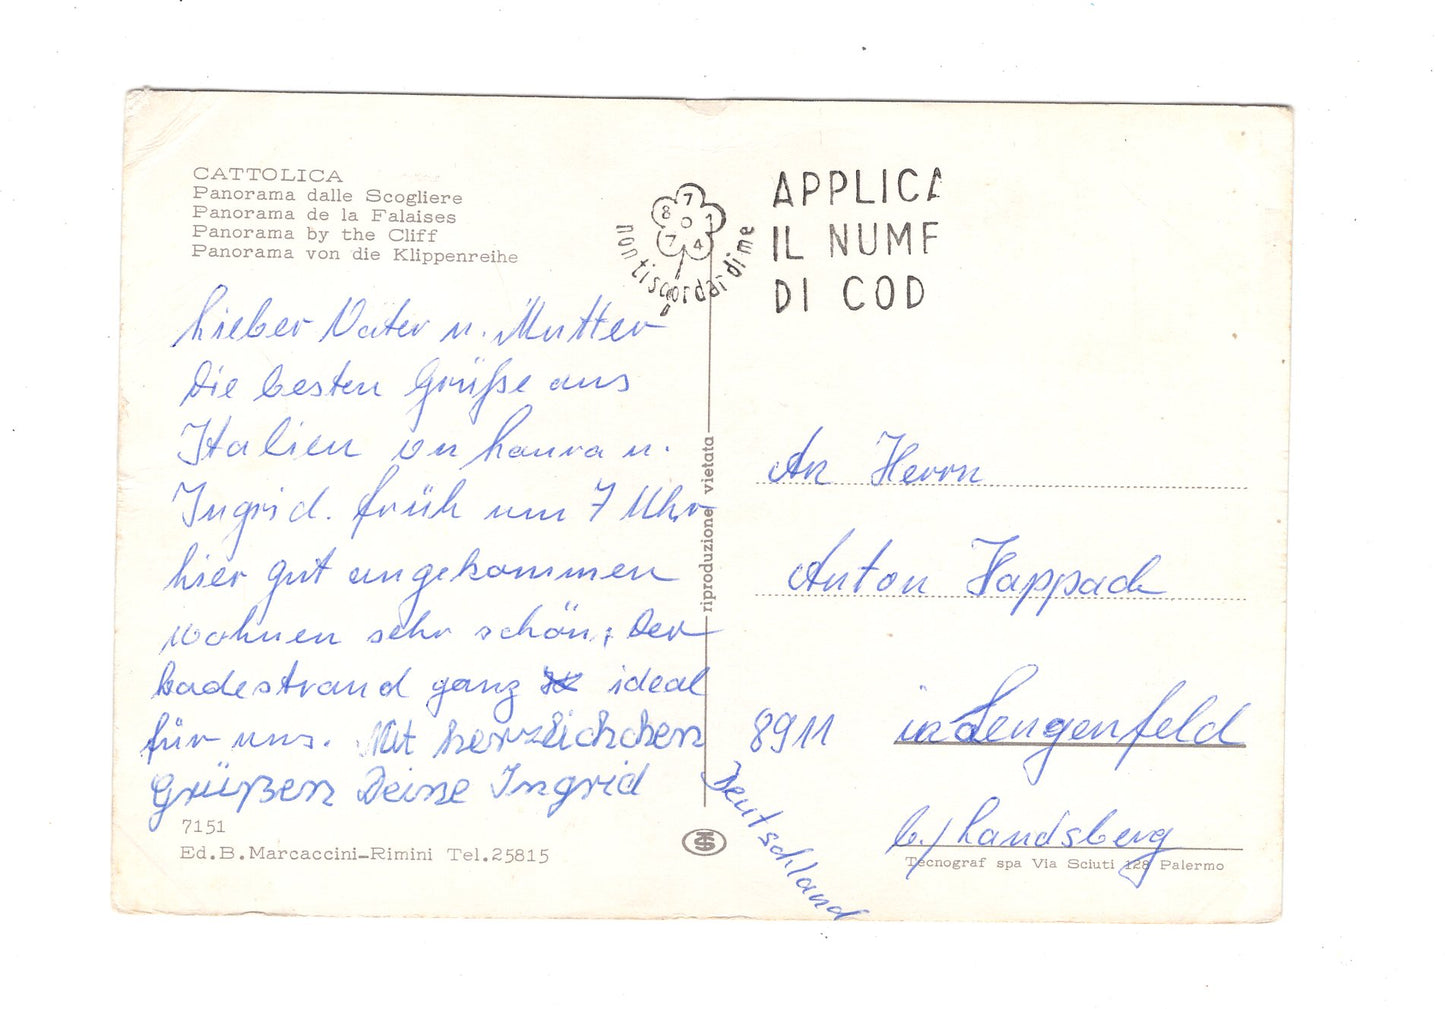 CATTOLICA
Panorama dalle Scogliere
Panorama de la Falaises
Panorama by the Cliff
Panorama von die Klippenreihe
Lieber Vater u. Mutter
Die besten Grüße aus
Italien von Laura u.
Ingrid. früh um 7 Uhr
hier gut angekommen
wohnen sehr schön; Der
badestrand ganz ideal
für uns. Mit herzlichchen
Grüßen Deine Ingrid
7151
Ed.B.Marcaccini-Rimini Tel.25815
riproduzione vietata
8 7 1 4 7
nontiscordardime
APPLICA
IL NUME
DI COD
An Herrn
Anton Happach
8911 in Lengenfeld
b./Landsberg
Deutschland
Tecnograf spa Via Sciuti 128 Palermo